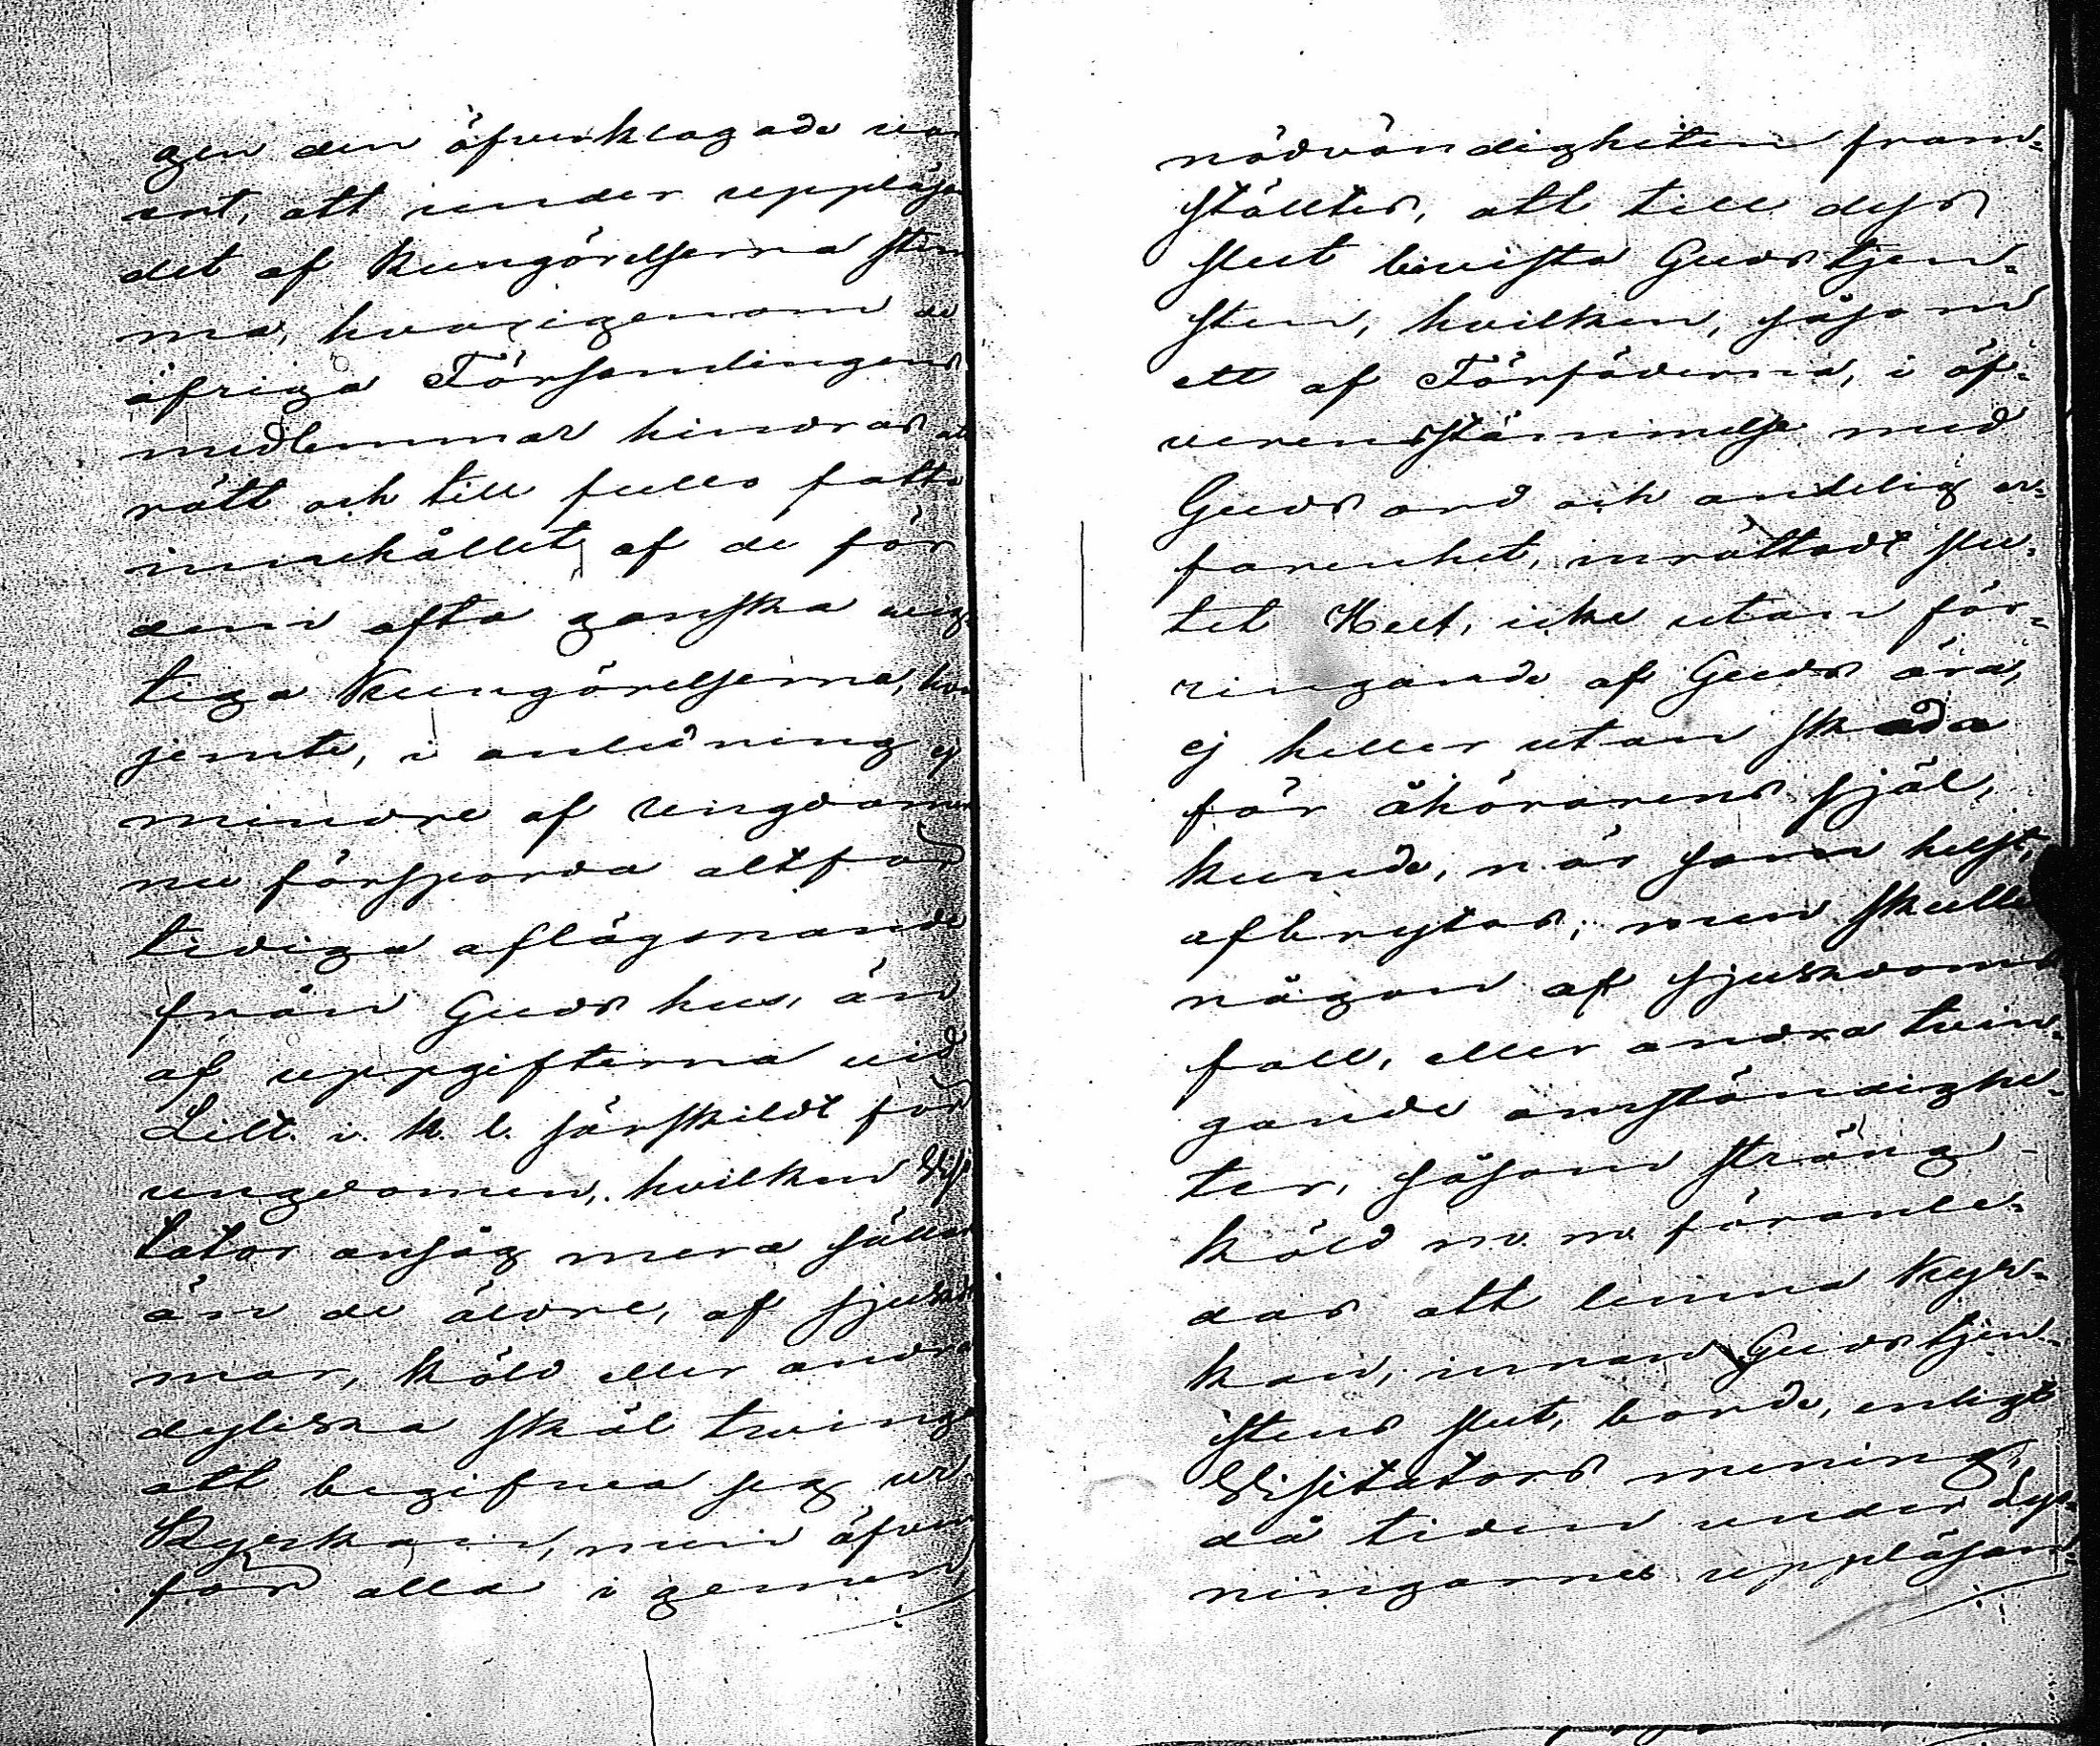 gen den öfverklagade
art, att under uppläsan
det af Kungörelserna stim
ma, hvarigenom de
öfriga Församlingens
medlemmar hindras
rätt och till fullo fatta
innehållet af de för
dem ofta ganska
tiga Kungörelserna,
jemte, i anledning ej
mindre af ungdomen
nu försporda altför
tidiga aflägsnande
från Guds hus, än
af uppgifterna vid
Litt. i. k. l. särskildt för
ungdomen, hvilken Visi
tator ansåg mera sällan
än de äldre, af sjukdo
mar, köld eller andra
dyliska skäl twinga
att begifva sig ur
Kyrkan, men äfven
för alla i gemen,
nödvändigheten fram-
ställtes, att till dess
slut bevista Gudstjen-
sten, hvilken, såsom
ett af Förfäderna, i öf-
verensstämmelse med
Guds ord och andelig er-
farenhet, inrättadt slu-
tet Helt, icke utan för-
ringande af Guds ära,
ej heller utan skada
för åhörarens själ,
kunde, när som helst,
afbrytas; men skulle
någon af sjukdoms
fall, eller andra tvin-
gande omständighe-
ter, såsom sträng
köld m. m. föranle-
das att lemna Kyr-
kan, innan Gudstjen-
stens slut, borde, enligt
Visitators mening,
då tiden under Lys-
ningarnes uppläsan-